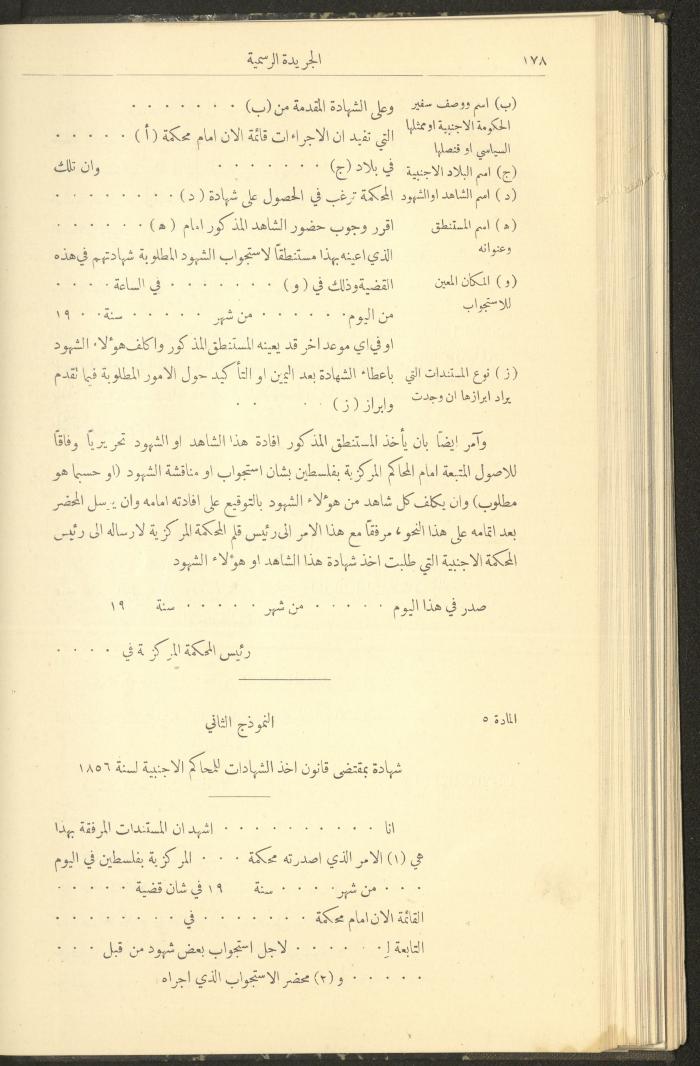 ١٧٨
الجريدة الرسمية
(ب) اسم ووصف سفير
الحكومة الاجنبية او ممثلها
السياسي او قنصلها
(ج) اسم البلاد الاجنبية
(د) اسم الشاهد او الشهود
(ه) اسم المستنطق
وعنوانه
(و) المكان المعين
للاستجواب
(ز) نوع المستندات التي
يراد ابرازها ان وجدت
وعلى الشهادة المقدمة من (ب) . . . . . . .
التي تفيد ان الاجراءات قائمة الان امام محكمة (أ) . . . . .
في بلاد (ج) . . . . . . . وان تلك
المحكمة ترغب في الحصول على شهادة (د) . . . . . . . .
اقرر وجوب حضور الشاهد المذكور امام (ه) . . . . . .
الذي اعينه بهذا مستنطقاً لاستجواب الشهود المطلوبة شهادتهم في هذه
القضية وذلك في (و) . . . . . . . في الساعة . . . .
من اليوم . . . . . . من شهر . . . . . سنة . . ١٩
او في اي موعد اخر قد يعينه المستنطق المذكور واكلف هؤلاء الشهود
باعطاء الشهادة بعد اليمين او التأكيد حول الامور المطلوبة فيما تقدم
وابراز (ز) . . . .
وآمر ايضاً بان يأخذ المستنطق المذكور افادة هذا الشاهد او الشهود تحريرياً وفاقاً
للاصول المتبعة امام المحاكم المركزية بفلسطين بشان استجواب او مناقشة الشهود (او حسبما هو
مطلوب) وان يكلف كل شاهد من هؤلاء الشهود بالتوقيع على افادته امامه وان يرسل المحضر
بعد اتمامه على هذا النحو، مرفقاً مع هذا الامر الى رئيس قلم المحكمة المركزية لارساله الى رئيس
المحكمة الاجنبية التي طلبت اخذ شهادة هذا الشاهد او هؤلاء الشهود
صدر في هذا اليوم . . . . . من شهر . . . . . سنة ١٩
رئيس المحكمة المركزية في . . . .
المادة ٥
النموذج الثاني
شهادة بمقتضى قانون اخذ الشهادات للمحاكم الاجنبية لسنة ١٨٥٦
انا . . . . . . . . . . اشهد ان المستندات المرفقة بهذا
هي (١) الامر الذي اصدرته محكمة . . . المركزية بفلسطين في اليوم
. . . من شهر . . . . سنة ١٩ في شان قضية . . . . .
القائمة الان امام محكمة . . . . . . . في . . . . . . . .
التابعة لـ . . . . . . لاجل استجواب بعض شهود من قبل . . .
. . . . . و (٢) محضر الاستجواب الذي اجراه